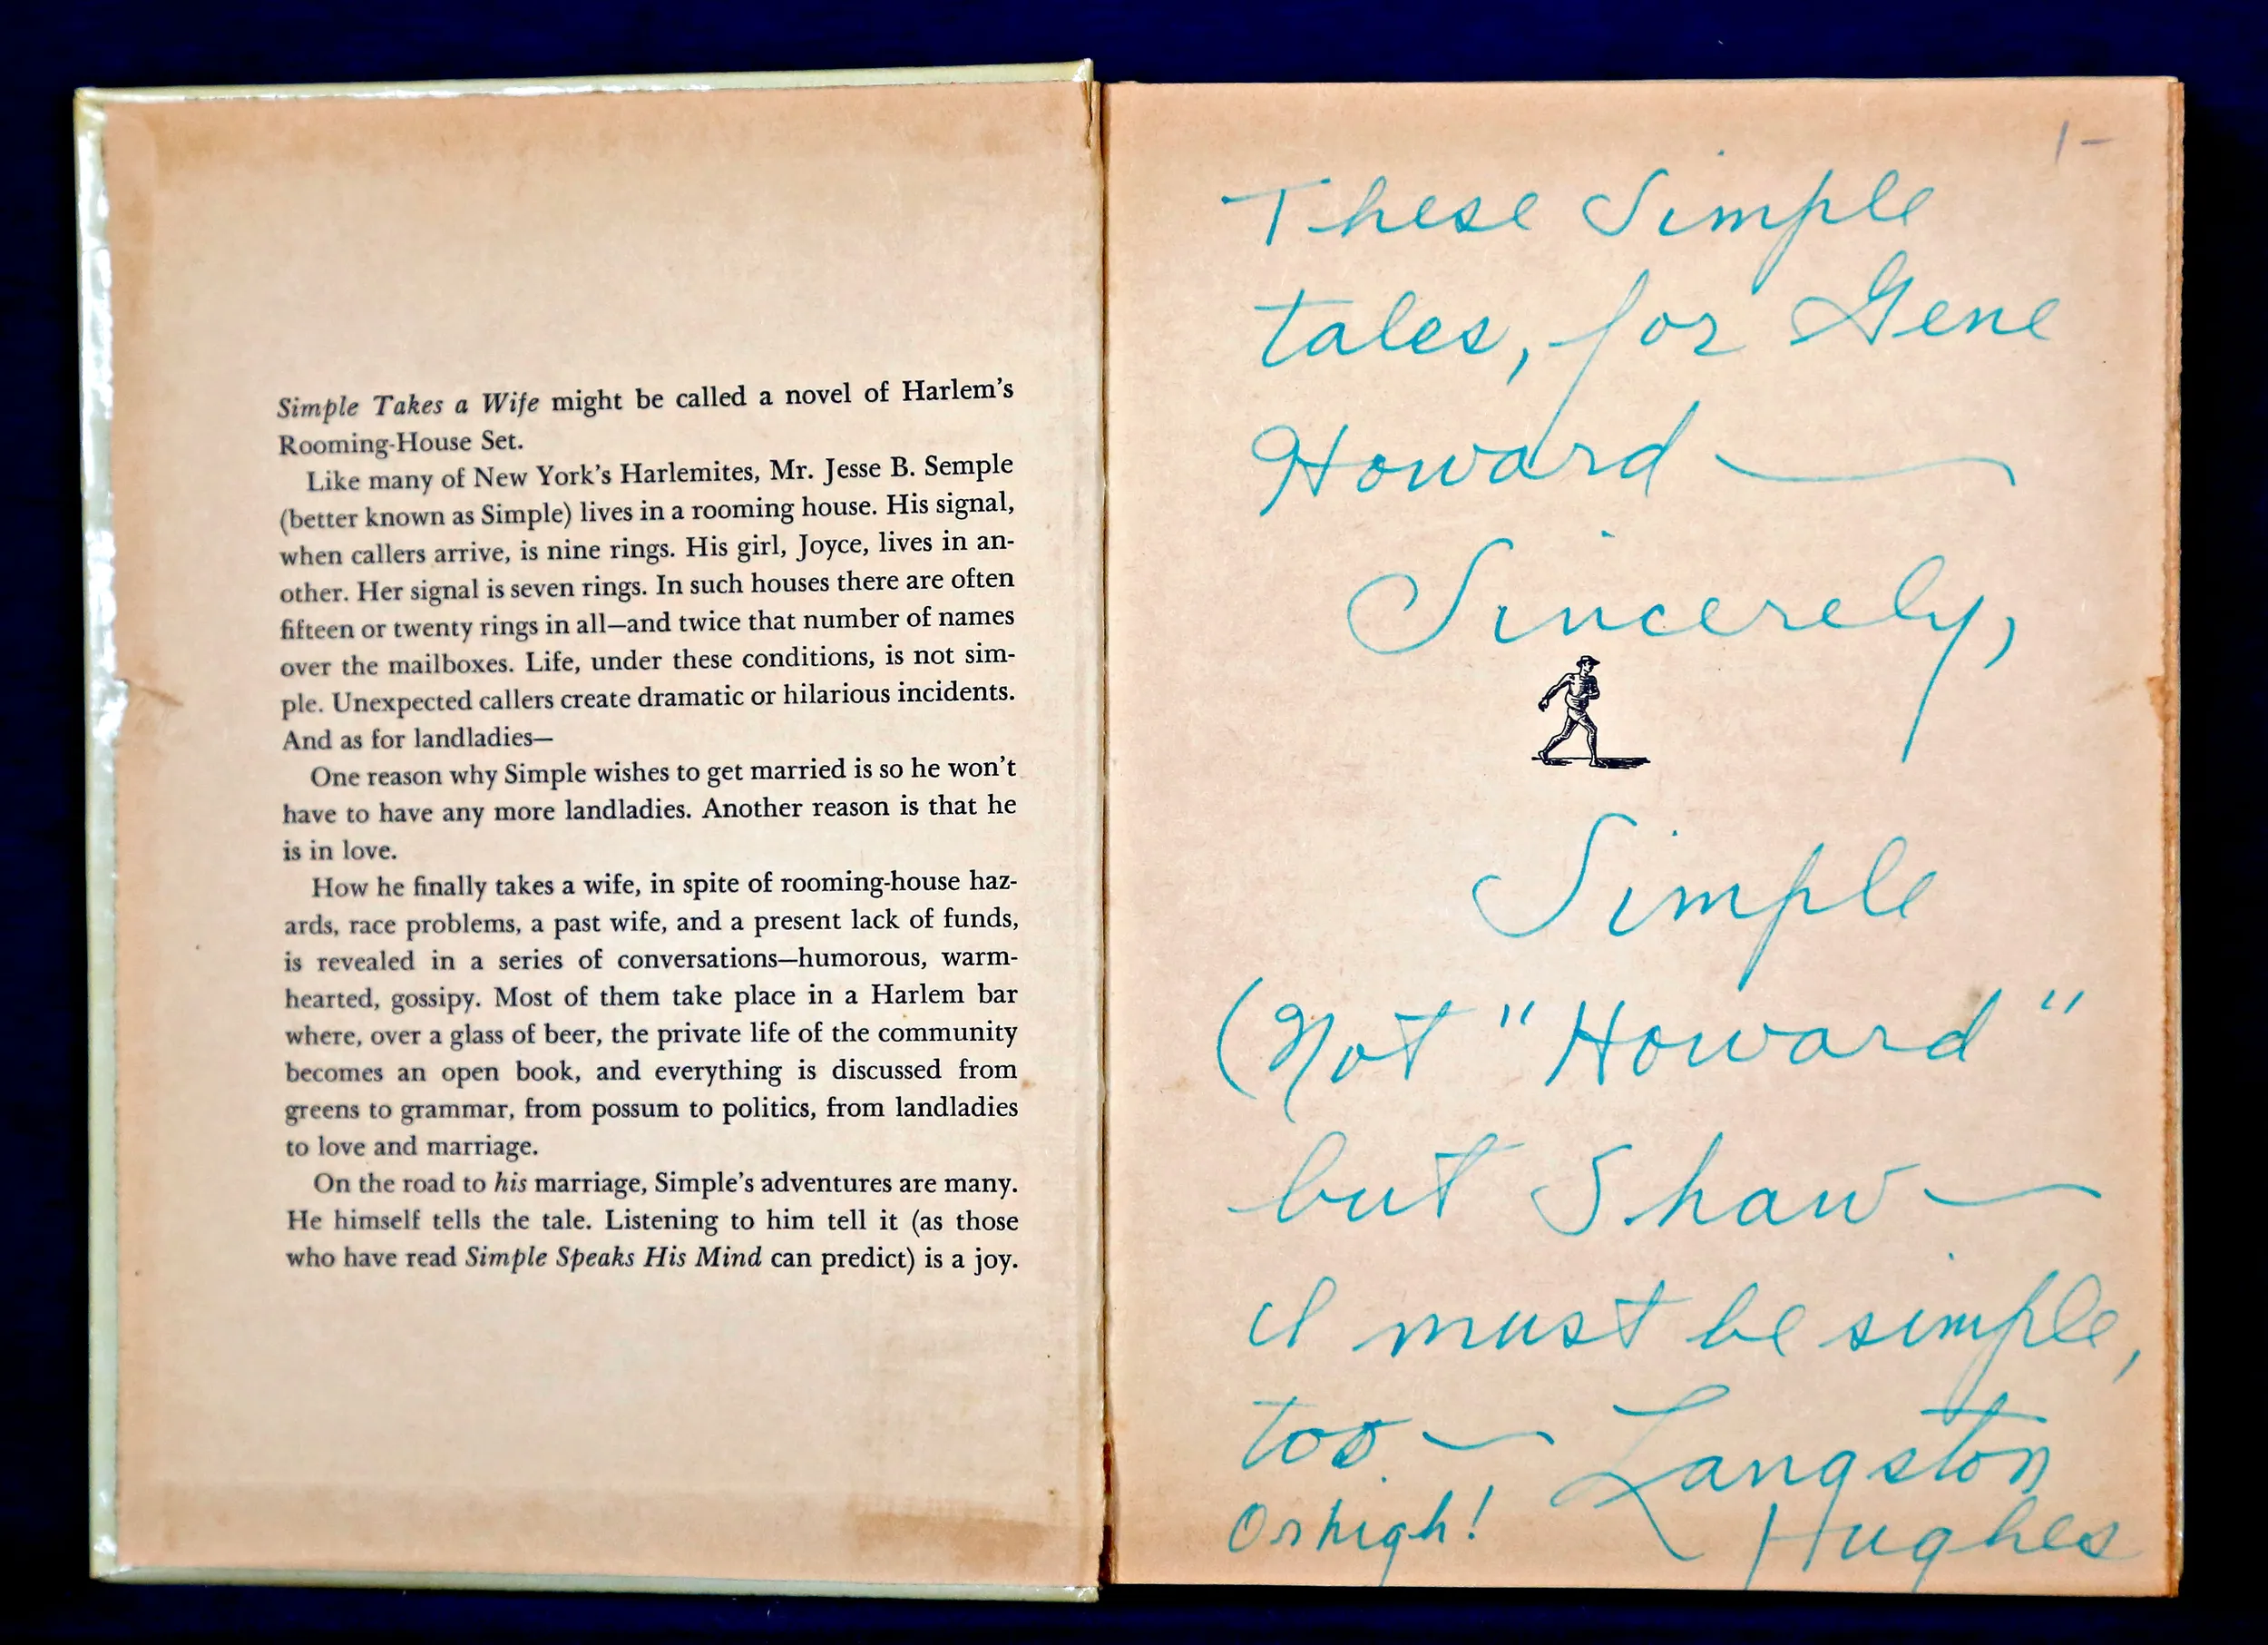 Simple Takes a Wife might be called a novel of Harlem's
Rooming-House Set.
Like many of New York's Harlemites, Mr. Jesse B. Semple
(better known as Simple) lives in a rooming house. His signal,
when callers arrive, is nine rings. His girl, Joyce, lives in an-
other. Her signal is seven rings. In such houses there are often
fifteen or twenty rings in all—and twice that number of names
over the mailboxes. Life, under these conditions, is not sim-
ple. Unexpected callers create dramatic or hilarious incidents.
And as for landladies—
One reason why Simple wishes to get married is so he won't
have to have any more landladies. Another reason is that he
is in love.
How he finally takes a wife, in spite of rooming-house haz-
ards, race problems, a past wife, and a present lack of funds,
is revealed in a series of conversations—humorous, warm-
hearted, gossipy. Most of them take place in a Harlem bar
where, over a glass of beer, the private life of the community
becomes an open book, and everything is discussed from
greens to grammar, from possum to politics, from landladies
to love and marriage.
On the road to his marriage, Simple's adventures are many.
He himself tells the tale. Listening to him tell it (as those
who have read Simple Speaks His Mind can predict) is a joy.
1-
These Simple
tales, for Gene
Howard —
Sincerely,
Simple
(Not "Howard"
but Shaw —
I must be simple,
too —
Or high!
Langston
Hughes